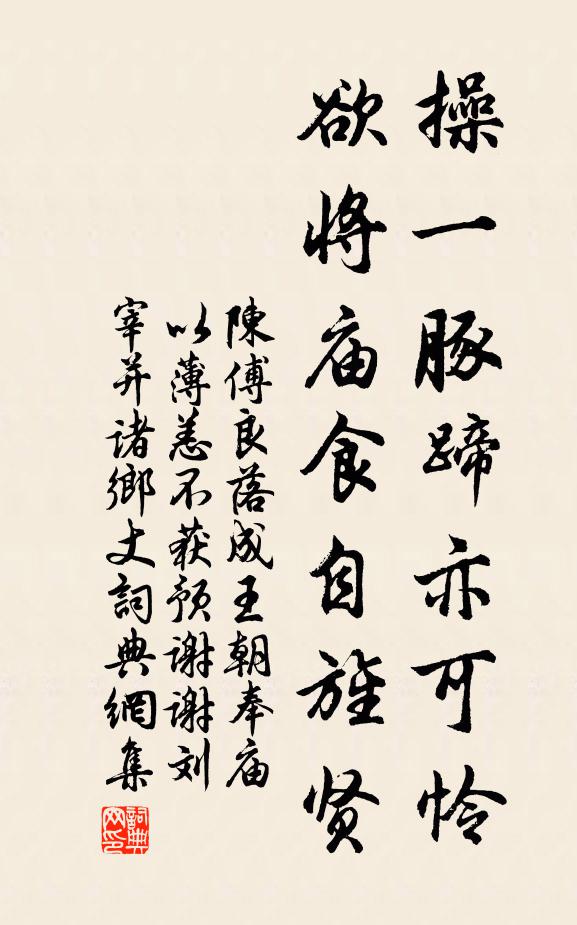 操一豚蹄亦可怜
欲将庙食自旌贤
陳傅良落成王朝奉庙
以薄恙不获预谢谢刘
宰并诸鄉丈詞典網集
詞典網印